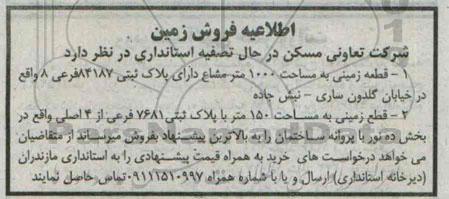 اطلاعیه فروش زمین
شرکت تعاونی مسکن در حال تصفیه استانداری در نظر دارد
۱ - قطعه زمینی به مساحت ۱۰۰۰ متر مشاع دارای پلاک ثبتی ۸۴۱۸۷فرعی ۸ واقع
در خیابان گلدون ساری - نبش جاده
۲ - قطع زمینی به مساحت ۱۵۰ متر با پلاک ثبتی ۷۶۸۱ فرعی از ۴ اصلی واقع در
بخش ده نور با پروانه ساختمان را به بالاترین پیشنهاد بفروش میرساند از متقاضیان
می خواهد درخواست های خرید به همراه قیمت پیشنهادی را به استانداری مازندران
(دبیرخانه استانداری) ارسال و یا با شماره همراه ۰۹۱۱۱۵۱۰۹۹۷تماس حاصل نمایند